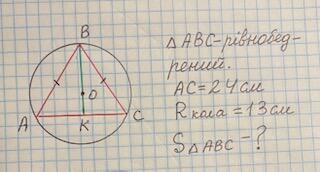 B
ΔABC-рівнобед-
рений.
AC=24см
O
Rкола=13см
A
K
C
SΔABC-?